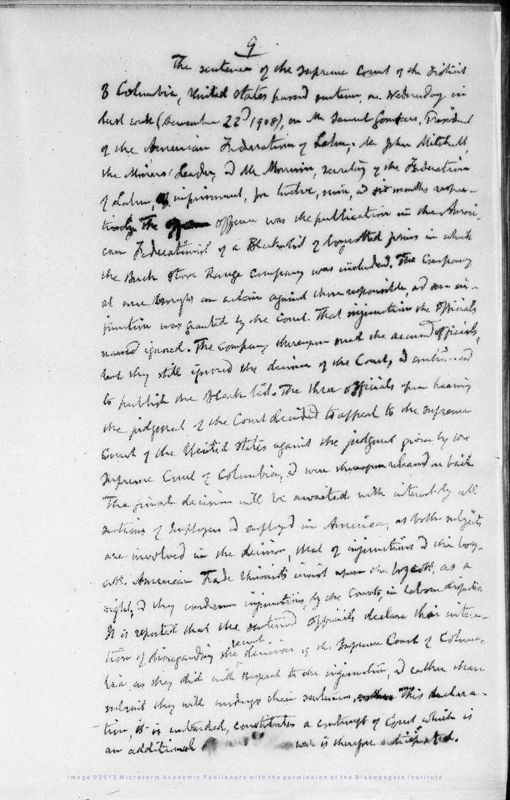 9
The sentence of the Supreme Court of the District
of Columbia, United States passed sentence, on Wednesday in
last week (December 22nd 1908), on Mr Samuel Gompers, President
of the American Federation of Labor, Mr John Mitchell,
the Miners' Leader, and Mr Morrison, secretary of the Federation
of Labor, of imprisonment, for twelve, nine, and six months respec-
tively. The offence was the publication in the Ameri-
can Federationist of a Blacklist of boycotted firms in which
the Buck Stove Range Company was included. The Company
at once brought an action against those responsible, and an in-
junction was granted by the Court. That injunction the officials
named ignored. The Company thereupon sued the accused officials,
but they still ignored the decision of the Court, and continued
to publish the Black list. The three officials upon hearing
the judgment of the Court decided to appeal to the Supreme
Court of the United States against the judgment given by the
Supreme Court of Columbia, and were thereupon released on bail.
The final decision will be awaited with interest by all
sections of Employers and employed in America, as both subjects
are involved in the decision, that of injunctions and the boy-
cott. American Trade Unionists insist upon the boycott, as a
right, and they condemn injunctions by the Courts in labour disputes.
It is reported that the sentenced officials declare their inten-
tion of disregarding the recent decision of the Supreme Court of Colum-
bia, as they did with respect to the injunction, and rather than
submit they will undergo their sentences, This declara-
tion, it is contended, constitutes a contempt of Court which is
an additional war is therefore anticipated.
Image ©2019 Microform Academic Publishers with the permission of the Bishopsgate Institute